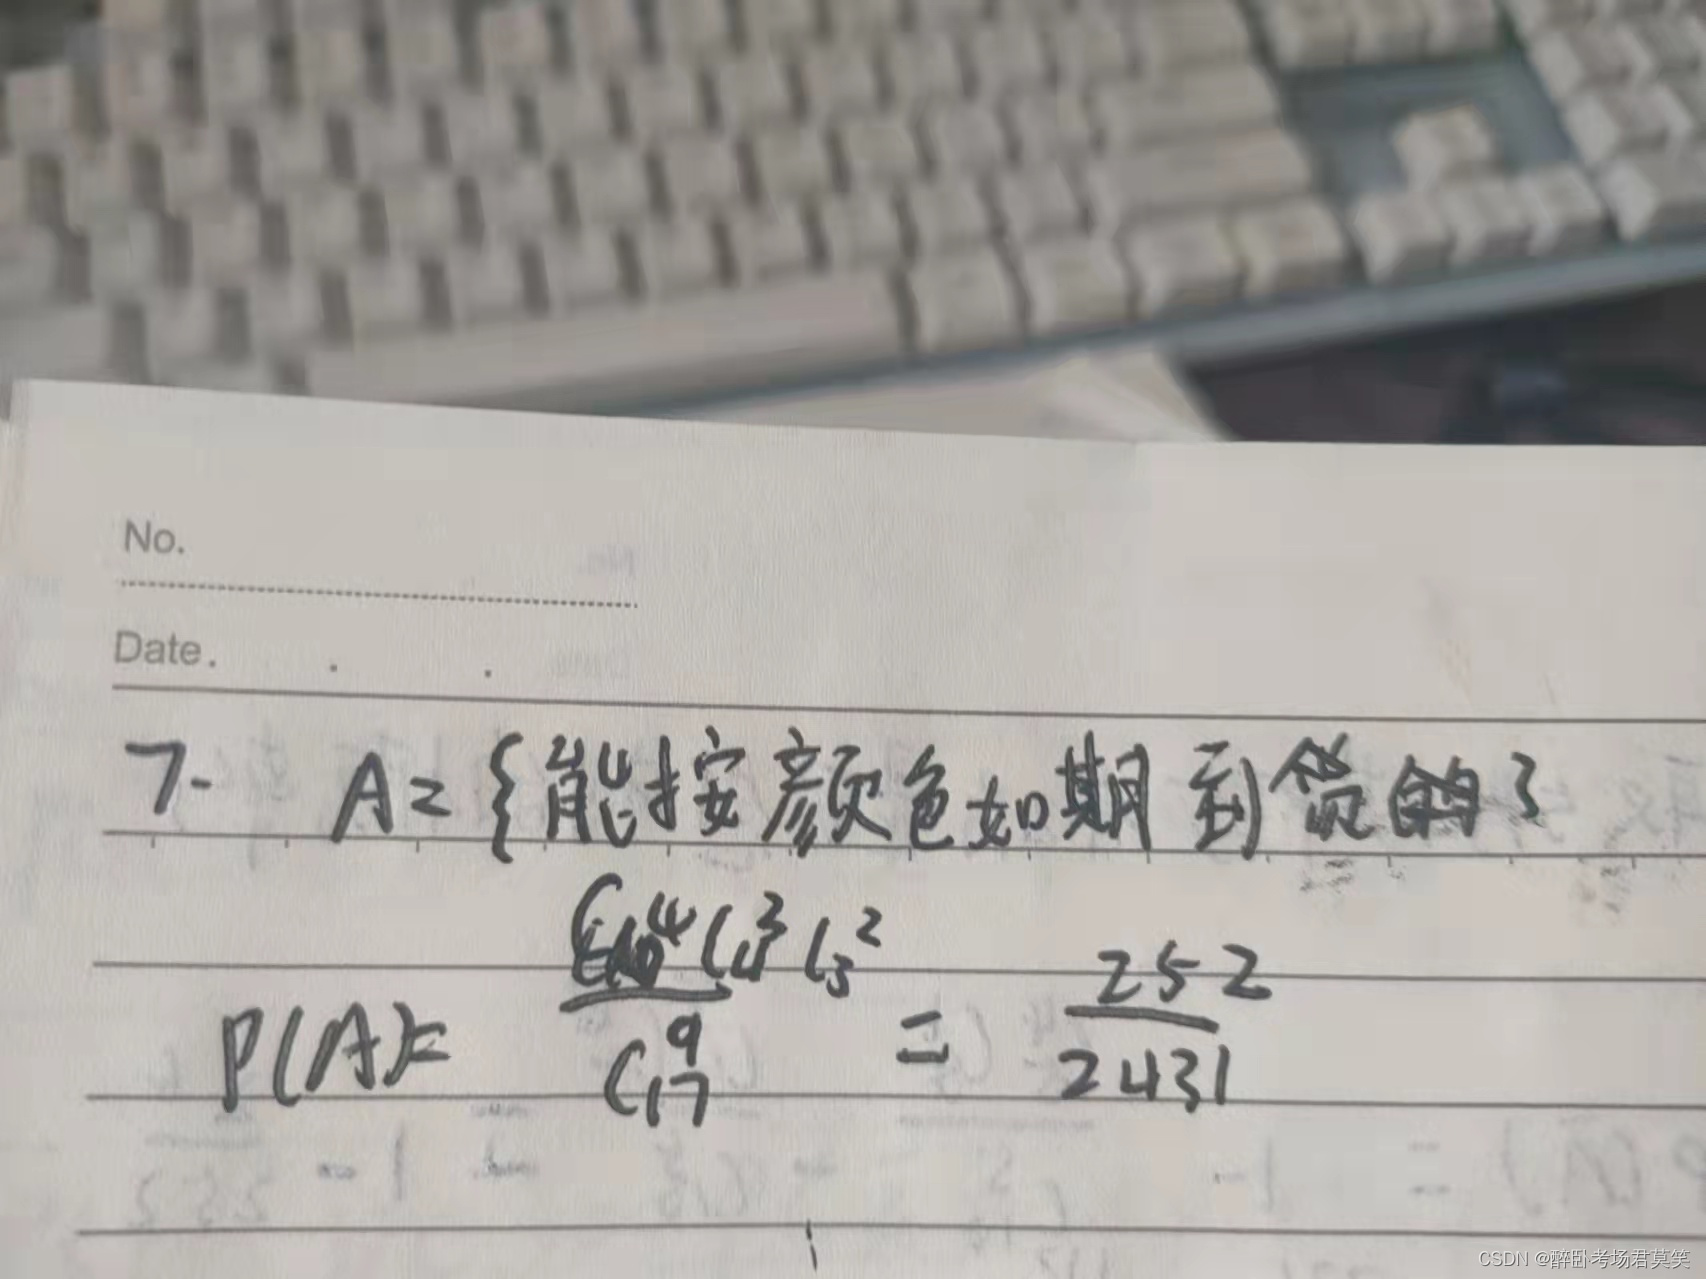 No.
Date.
7. A={能按颜色如期到货的}
P(A)= C₁₀⁴C₄³C₃² / C₁₇⁹ = 252 / 2431
CSDN @醉卧考场君莫笑